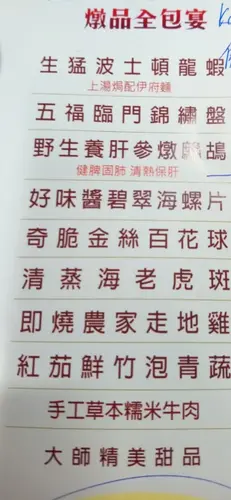 燉品全包宴
生猛波士頓龍蝦
上湯焗配伊府麵
五福臨門錦繡盤
野生養肝參燉鷓鴣
健脾固肺 清熱保肝
好味醬碧翠海螺片
奇脆金絲百花球
清蒸海老虎斑
即燒農家走地雞
紅茄鮮竹泡青蔬
手工草本糯米牛肉
大師精美甜品